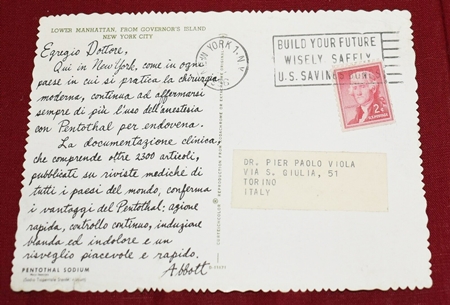 LOWER MANHATTAN, FROM GOVERNOR'S ISLAND
NEW YORK CITY
Egregio Dottore,
Qui in New York, come in ogni
paese in cui si pratica la chirurgia
moderna, continua ad affermarsi
sempre di più l'uso dell'anestesia
con Pentothal per endovena.
La documentazione clinica,
che comprende oltre 2300 articoli,
pubblicati su riviste mediche di
tutti i paesi del mondo, conferma
i vantaggi del Pentothal: azione
rapida, controllo continuo, induzione
blanda ed indolore e un
risveglio piacevole e rapido.
Abbott
PENTOTHAL SODIUM
YORK 1, N.Y.
BUILD YOUR FUTURE
WISELY SAFELY
U.S. SAVINGS BONDS
2¢
DR. PIER PAOLO VIOLA
VIA S. GIULIA, 51
TORINO
ITALY